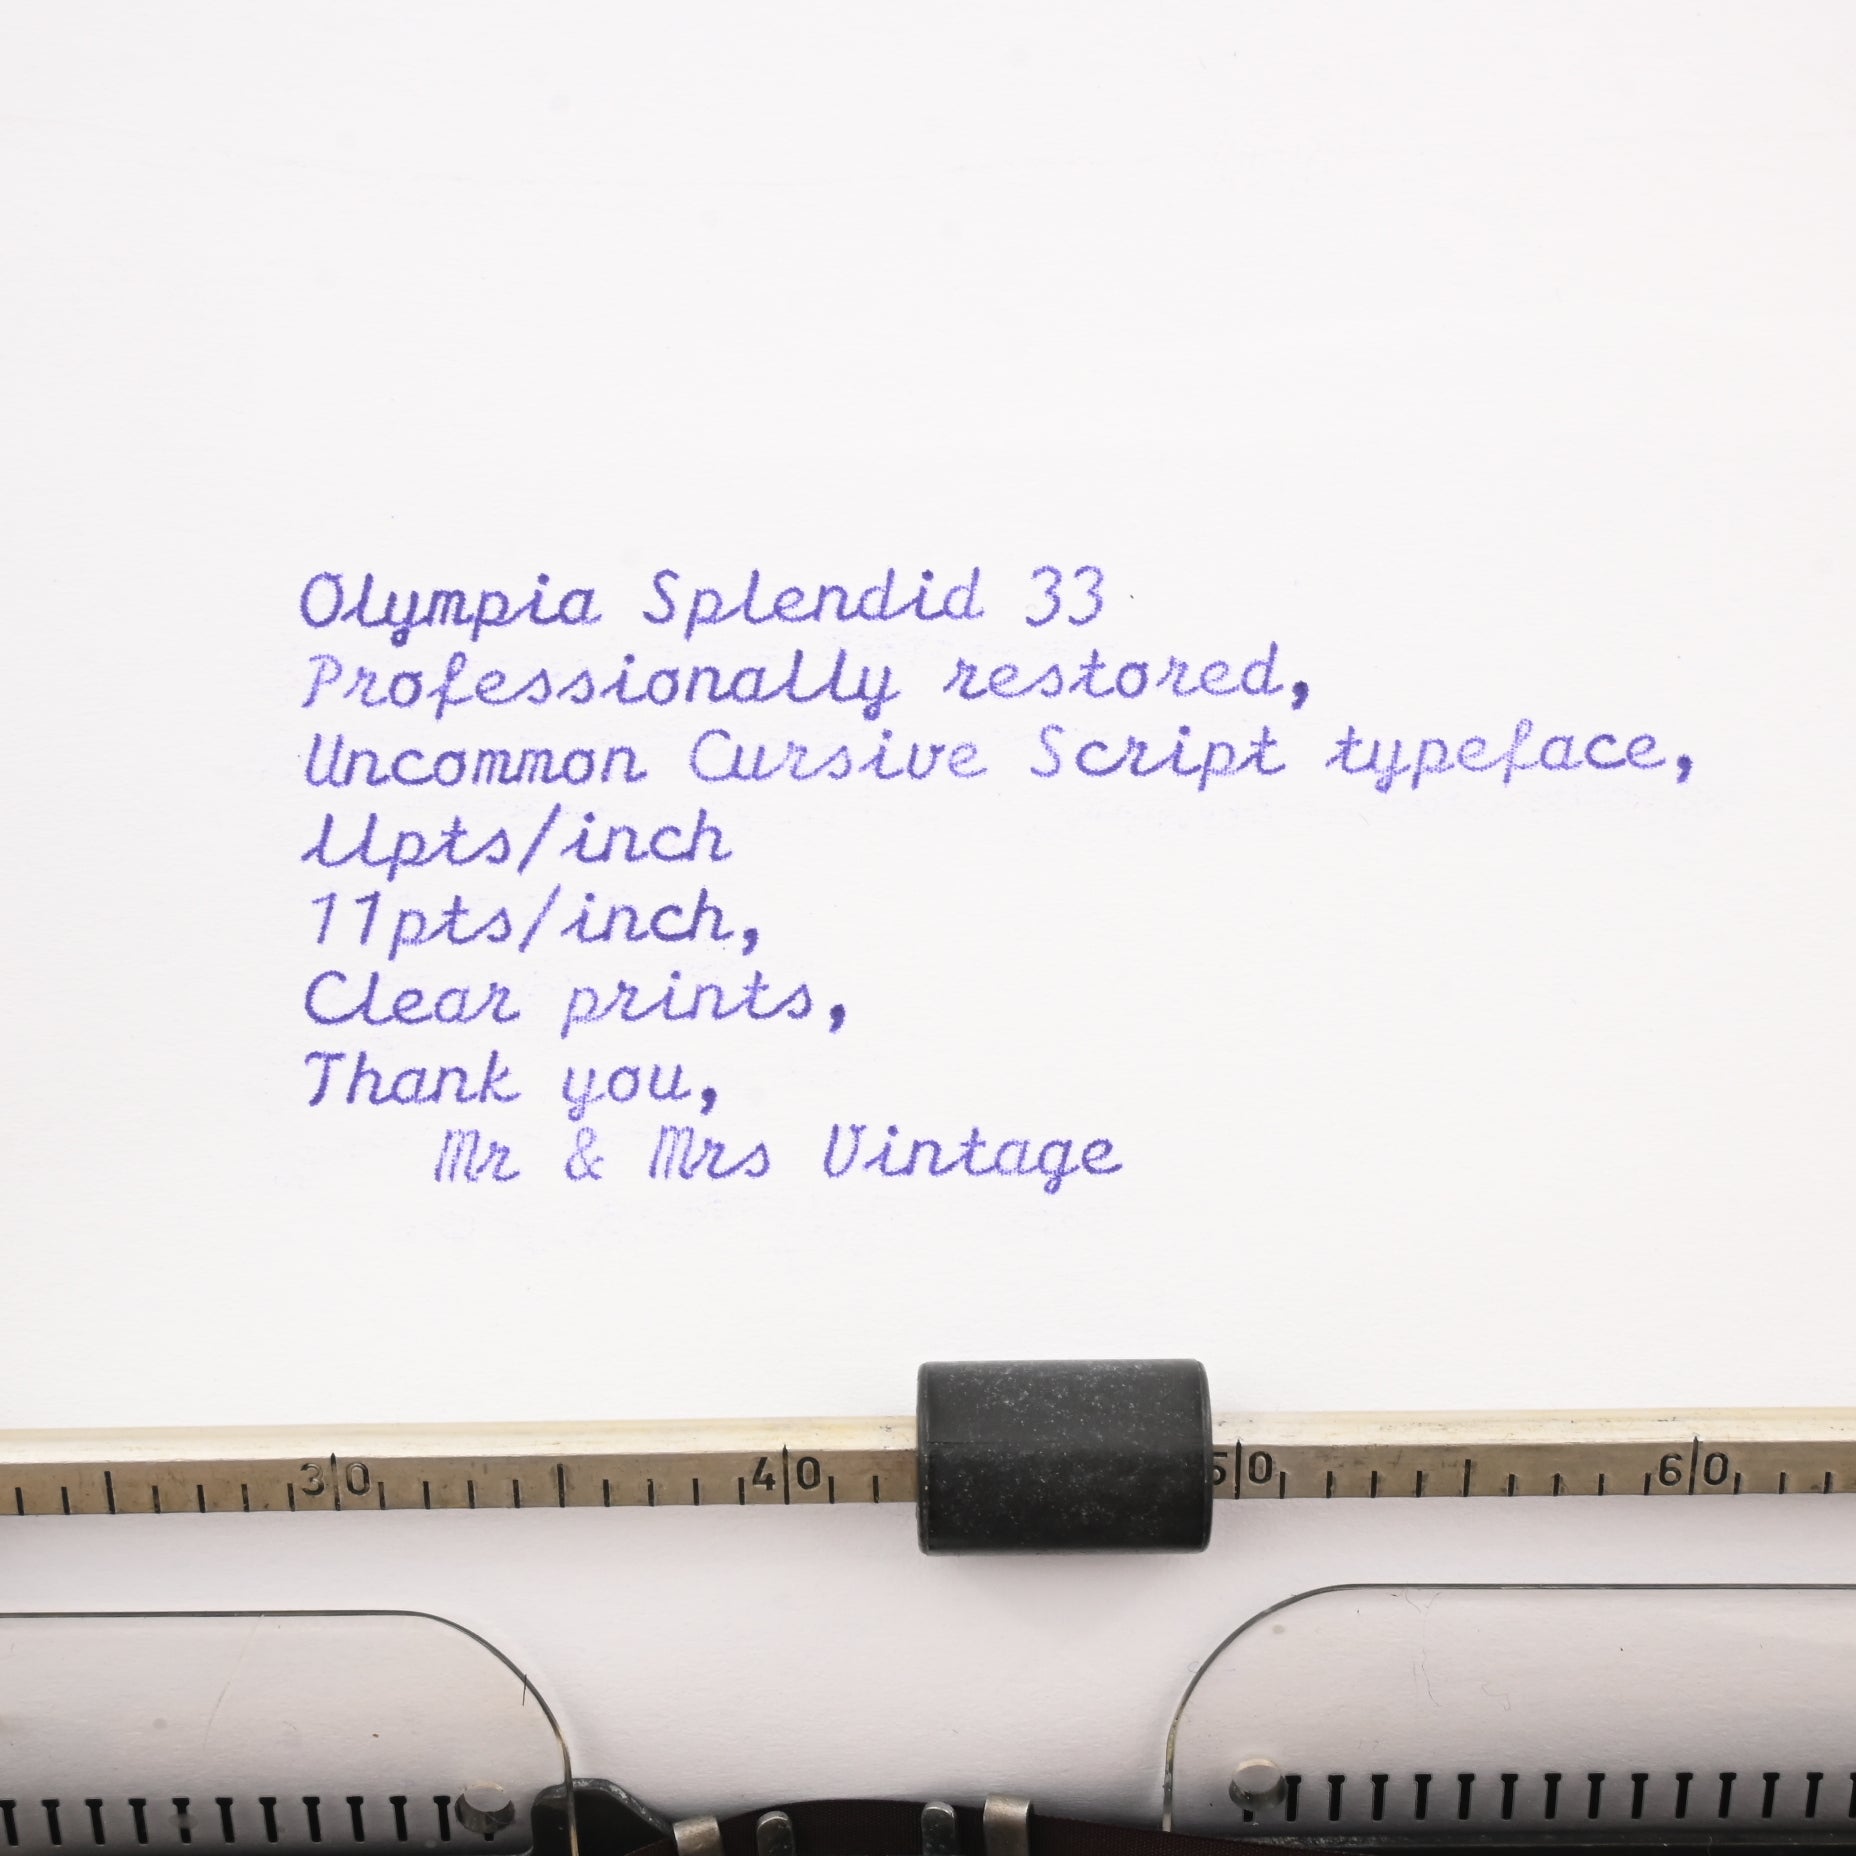 Olympia Splendid 33
Professionally restored,
Uncommon Cursive Script typeface,
llpts/inch
11pts/inch,
Clear prints,
Thank you,
Mr & Mrs Vintage
30 40 50 60